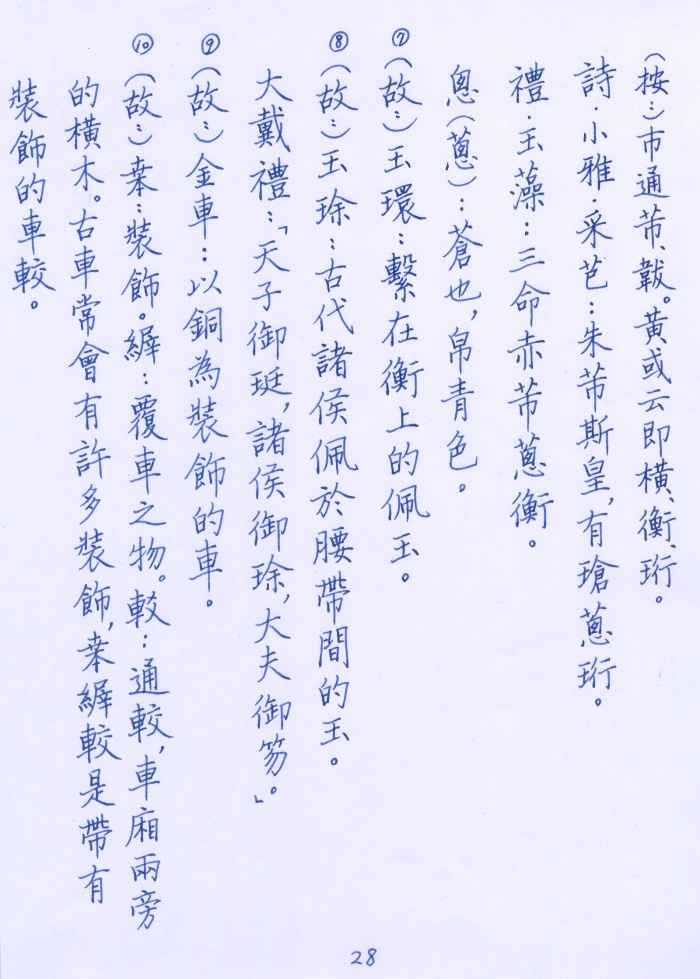 (按:)巿通芾、韍。黃或云即橫、衡、珩。
詩·小雅·采芑:朱芾斯皇,有瑲蔥珩。
禮·玉藻:三命赤芾蔥衡。
悤(蔥):蒼也,帛青色。
⑦(故:)玉環:繫在衡上的佩玉。
⑧(故:)玉瑹:古代諸侯佩於腰帶間的玉。
大戴禮:「天子御珽,諸侯御瑹,大夫御笏」。
⑨(故:)金車:以銅為裝飾的車。
⑩(故:)桒:裝飾。縪:覆車之物。較:通較,車廂兩旁
的橫木。古車常會有許多裝飾,桒縪較是帶有
裝飾的車較。
28